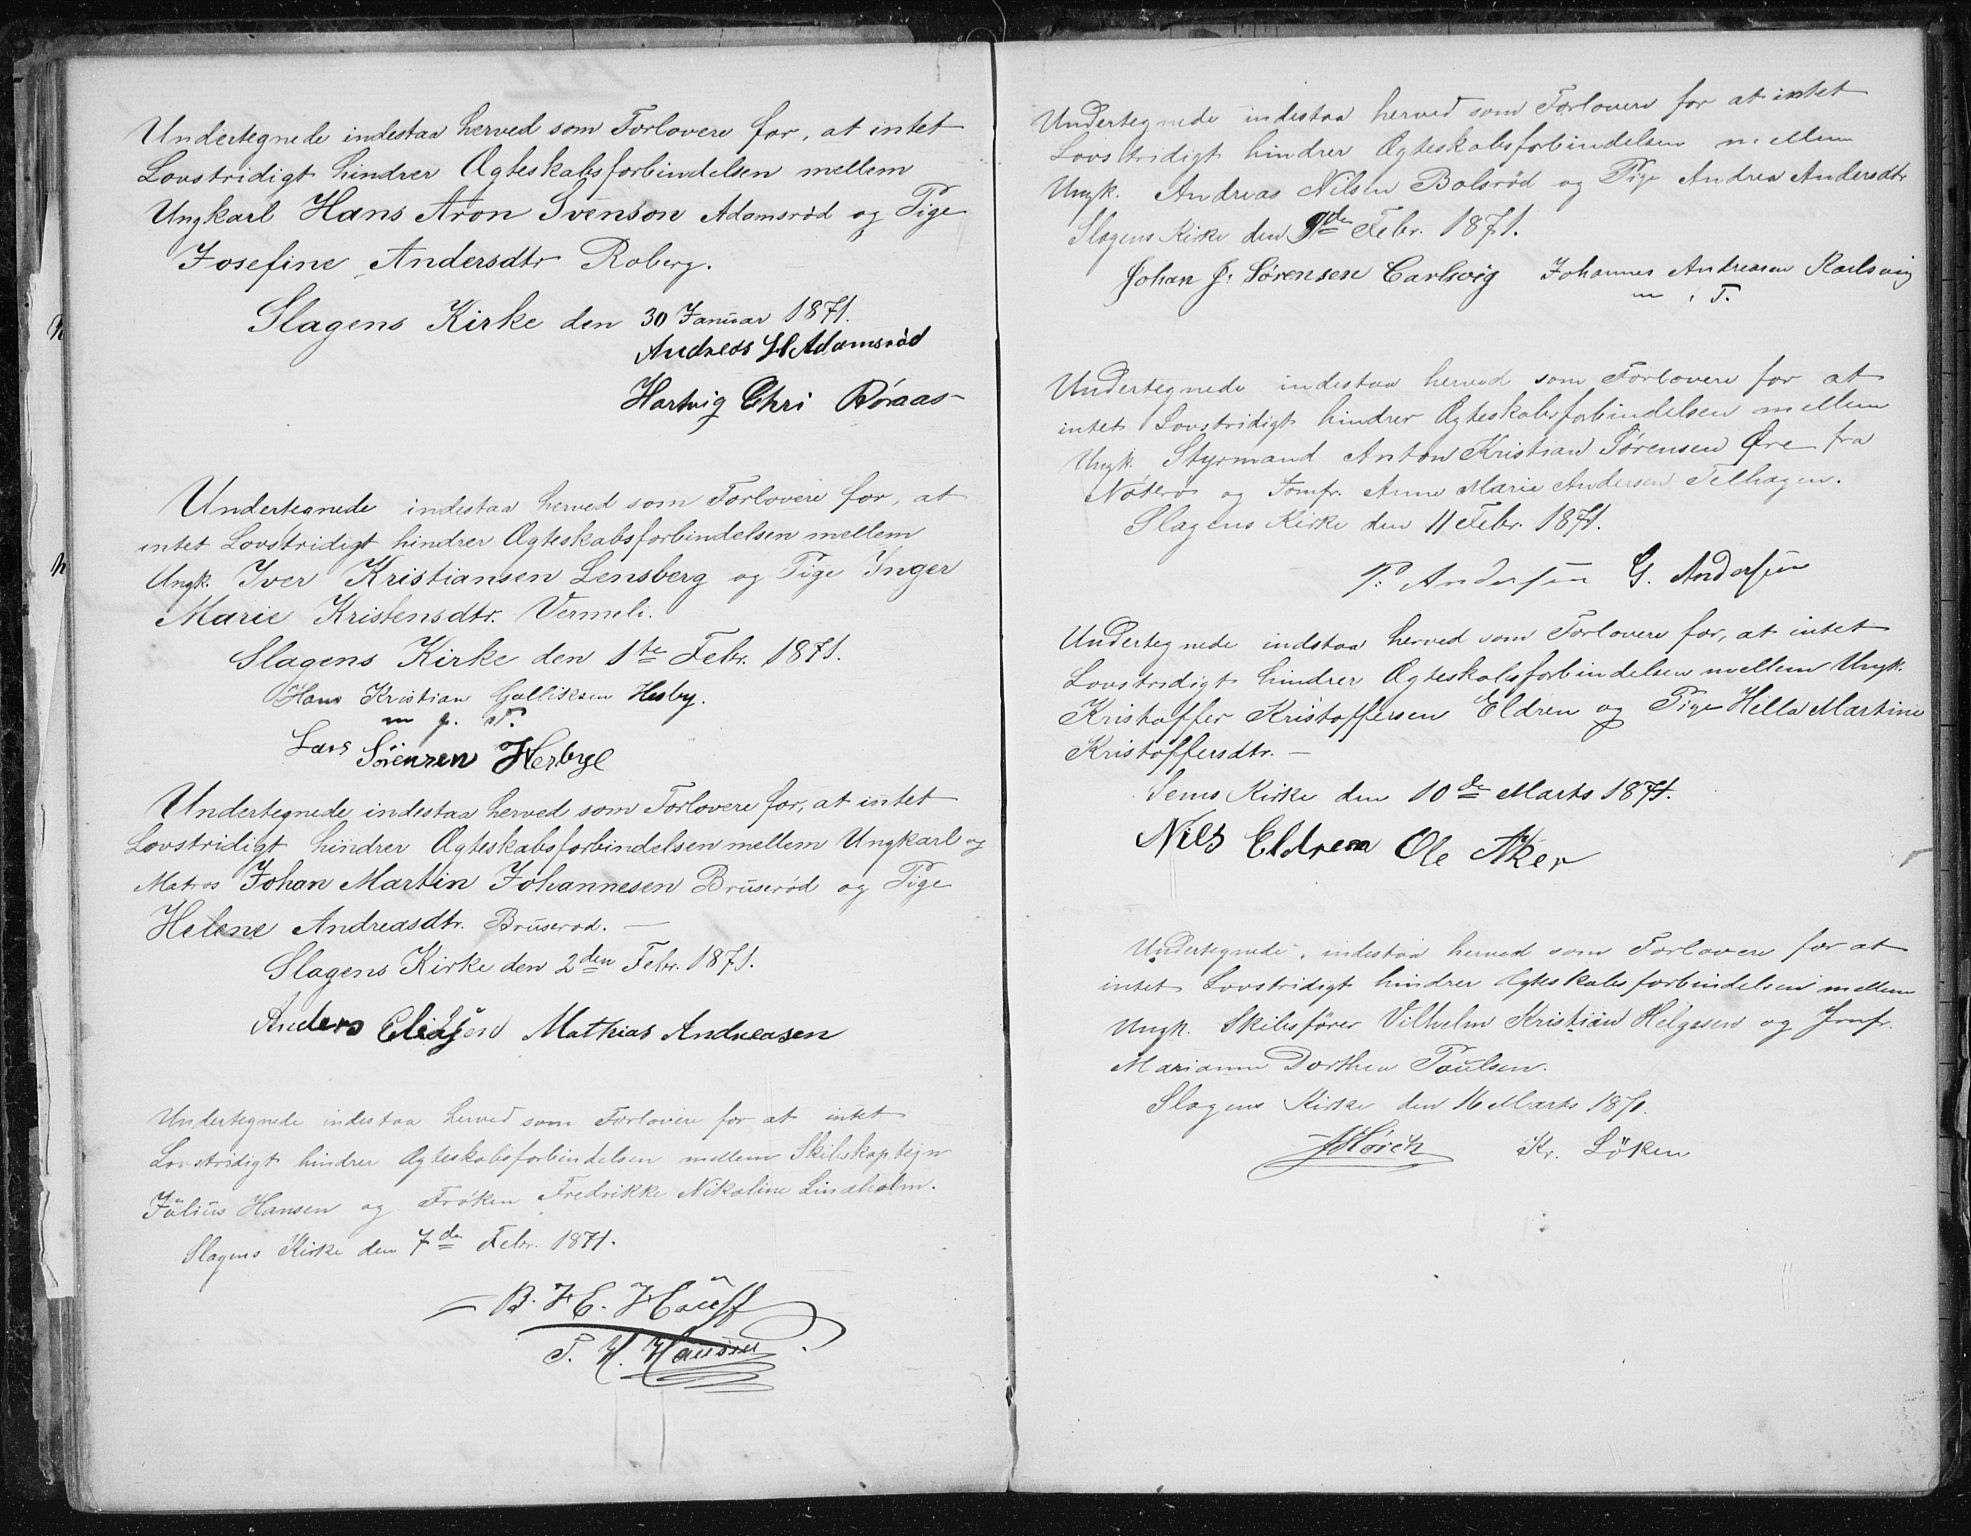 Undertegnede indestaa herved som Forlovere for, at intet
Lovstridigt hindrer Ægteskabsforbindelsen mellem
Ungkarl Hans Aron Svenson Adamsrød og Pige
Josefine Andersdtr Roberg.
Slagens Kirke den 30 Januar 1871.
Andreas H Adamsrød
Hartvig Chri Røraas
Undertegnede indestaa herved som Forlovere for, at
intet Lovstridigt hindrer Ægteskabsforbindelsen mellem
Ungk. Iver Kristiansen Lensberg og Pige Inger
Marie Kristensdtr. Vermeli.
Slagens Kirke den 1te Febr. 1871.
Hans Kristian Gulliksen Hesby.
m p. P.
Lars Sörensen Hesbye
Undertegnede indestaa herved som Forlovere for, at intet
Lovstridigt hindrer Ægteskabsforbindelsen mellem Ungkarl og
Matros Johan Martin Johannesen Bruserød og Pige
Helene Andreasdtr. Bruserod. —
Slagens Kirke den 2den Febr. 1871.
Anders Eliasen Mathias Andreasen
Undertegnede indestaa herved som Forlovere for at intet
Lovstridigt hindrer Ægteskabsforbindelsen mellem Skibskaptejn
Julius Hansen og Frøken Fredrikke Nikoline Lindholm.
Slagens Kirke den 7de Febr. 1871.
B. H E. Hauff
P. H. Hansen
Undertegnede indestaa herved som Forlovere for at intet
Lovstridigt hindrer Ægteskabsforbindelsen mellem
Ungk. Andreas Nilsen Bolsrød og Pige Andrea Andersdtr
Slagens Kirke den 9de Febr. 1871.
Johan J. Sørensen Carlsvig Johannes Andreasen Karlsvig
m i P.
Undertegnede indestaa herved som Forlovere for at
intet Lovstridigt hindrer Ægteskabsforbindelsen mellem
Ungk. Styrmand Anton Kristian Sørensen Øre fra
Nøterø og Jomfr. Anne Marie Andersen Telhagen.
Slagens Kirke den 11 Febr. 1871.
P. Andersen G. Andersen
Undertegnede indstaa herved som Forlovere for, at intet
Lovstridigt hindrer Ægteskabsforbindelsen mellem Ungk.
Kristoffer Kristoffersen Eldren og Pige Hella Martine
Kristoffersdtr. —
Sems Kirke den 10de Marts 1871.
Nils Eldren Ole Aker
Undertegnede, indestaa herved som Forlovere for at
intet Lovstridigt hindrer Ægteskabsforbindelsen mellem
Ungk. Skibsfører Vilhelm Kristian Helgesen og Jmfr.
Marianne Dorthea Paulsen.
Slagens Kirke den 16 Marts 1871.
Kr. Löken